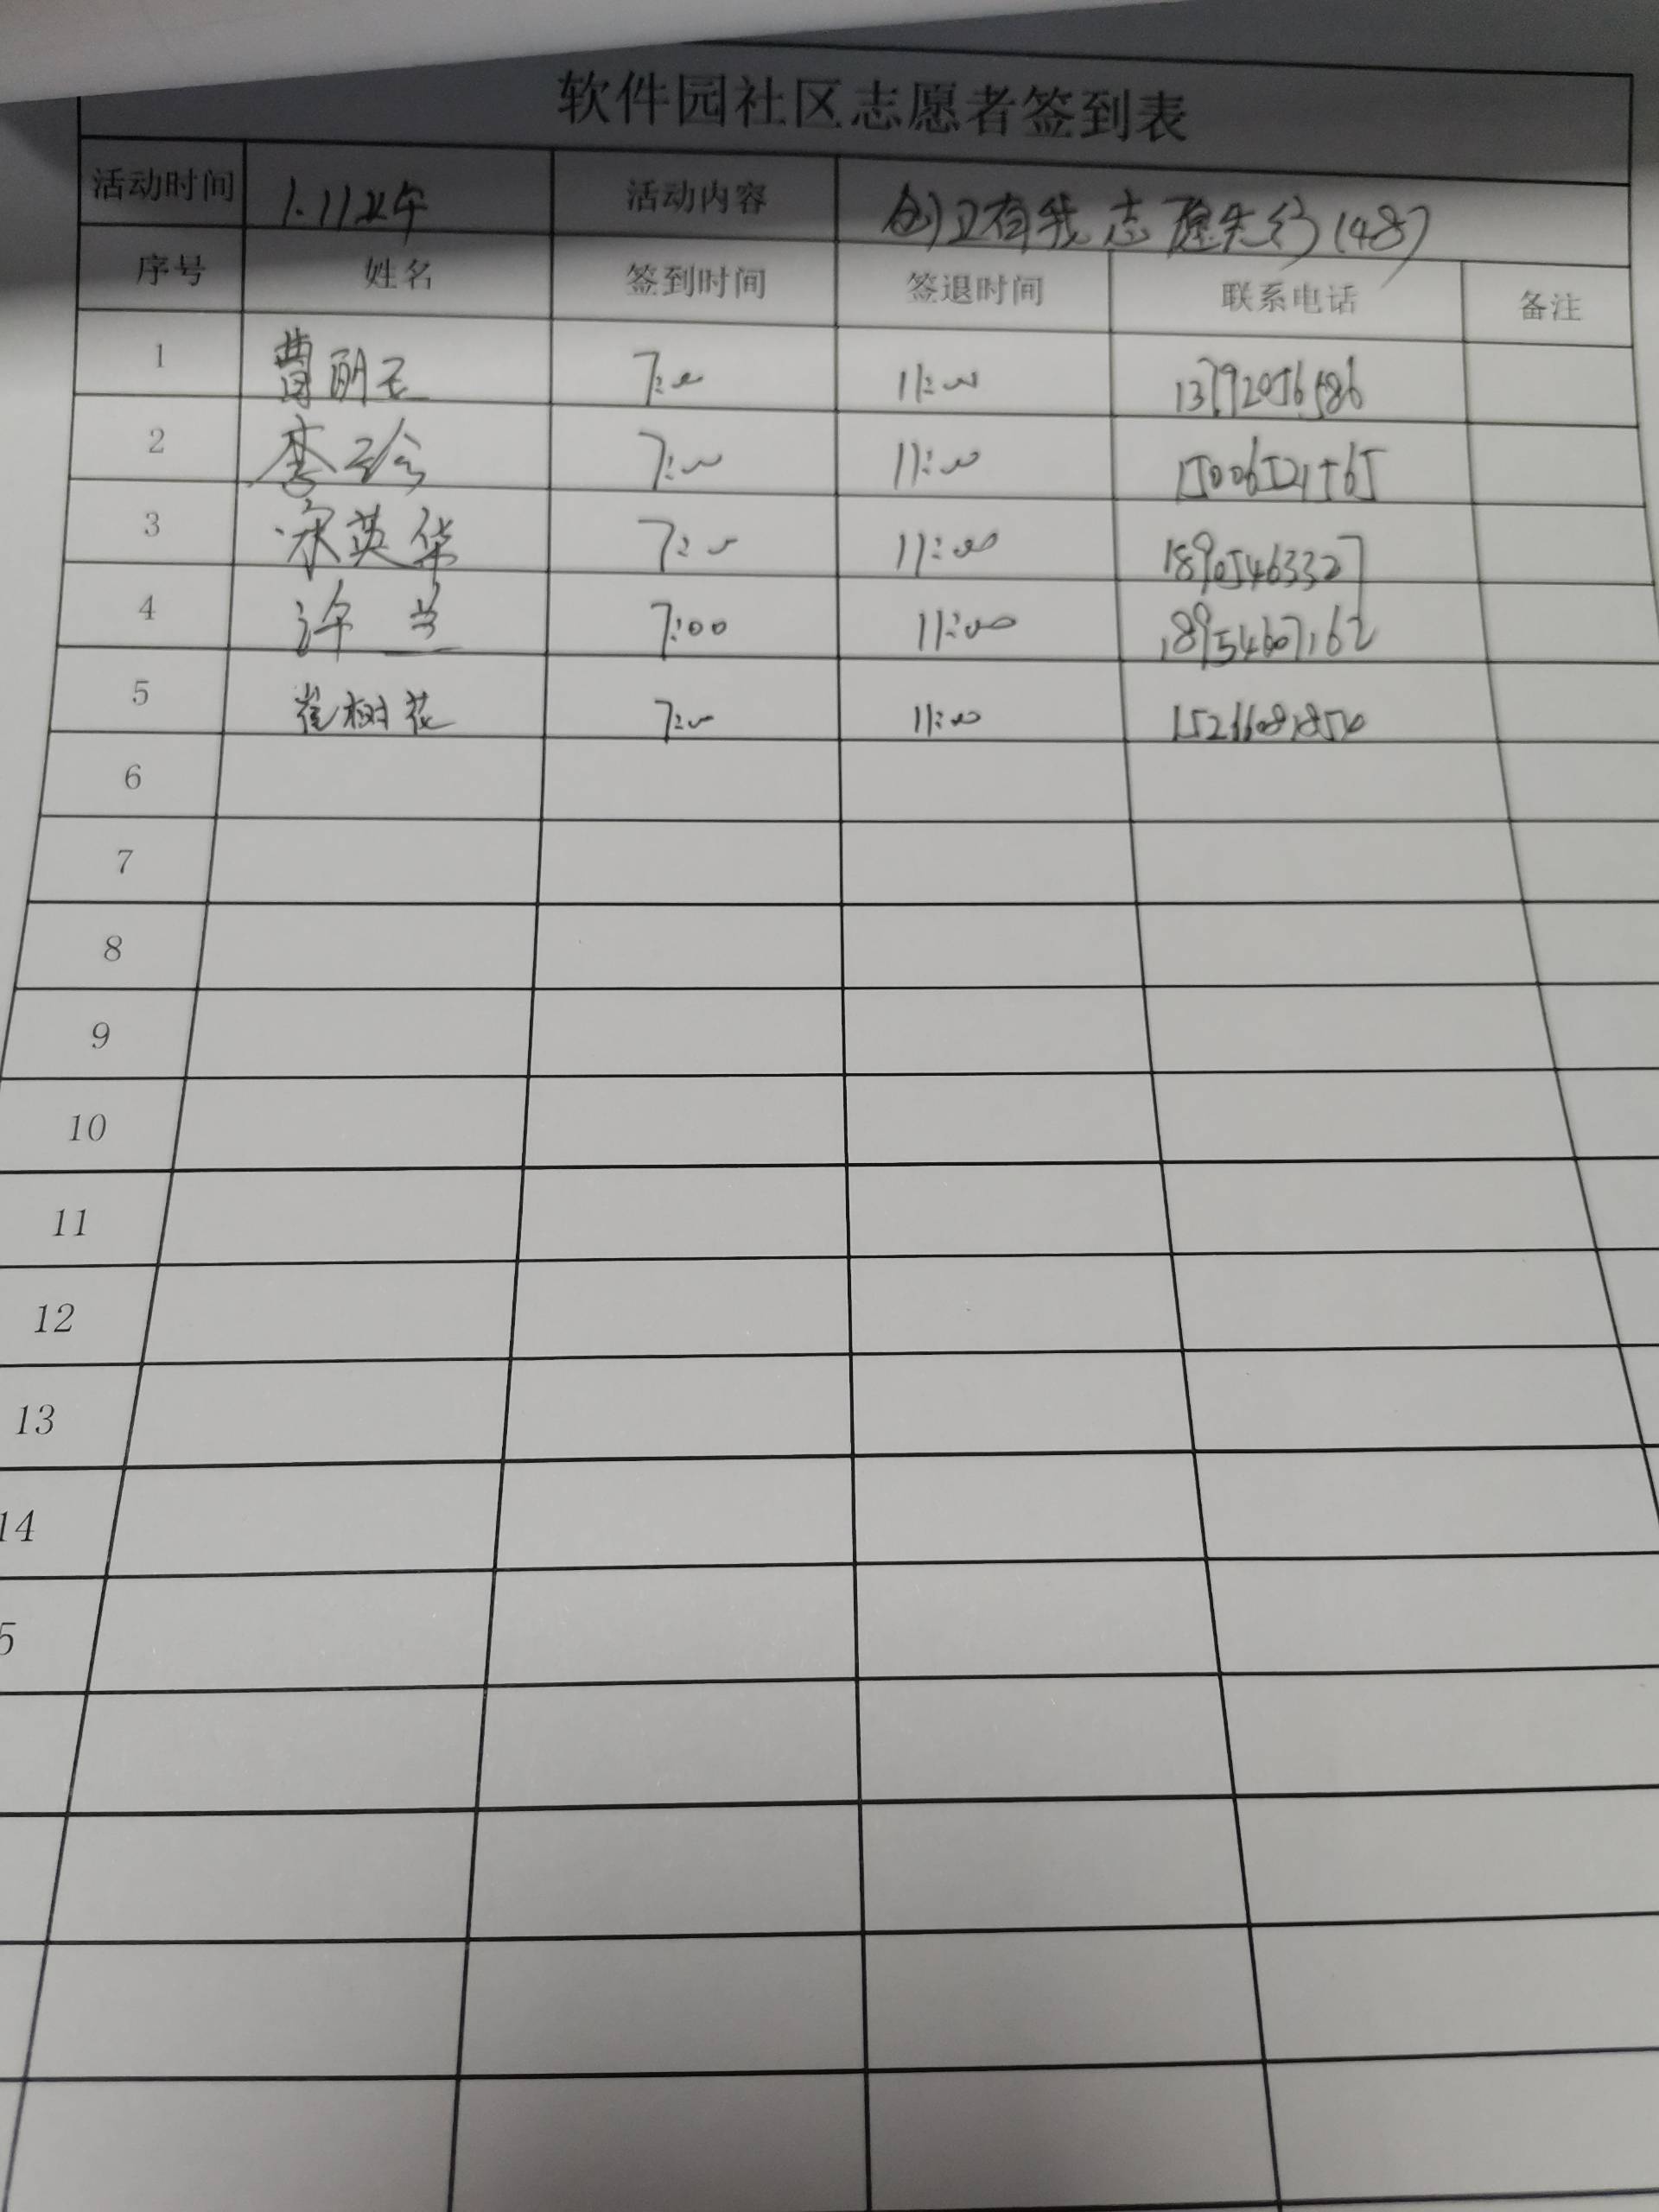 软件园社区志愿者签到表
活动时间 1.11上午 活动内容 创卫有我 志愿先行(48)
序号 姓名 签到时间 签退时间 联系电话 备注
1 曹丽玉 7:00 11:00
2 李玲 7:00 11:00 15006521565
3 宋英华 7:00 11:00 18905463327
4 许兰 7:00 11:00 18954607162
5 崔树花 7:00 11:00
6
7
8
9
10
11
12
13
14
5